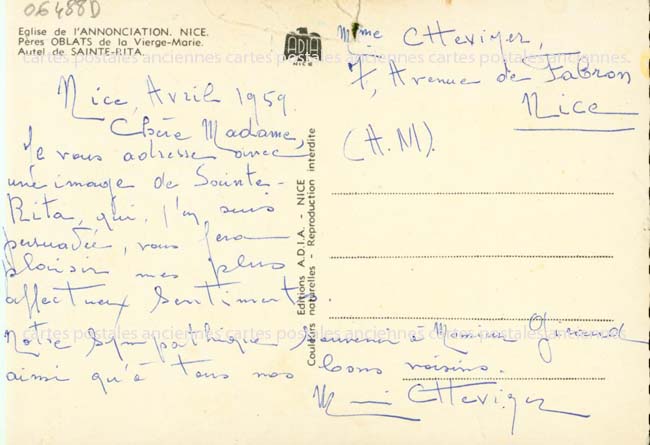 06488D
Eglise de l'ANNONCIATION. NICE.
Pères OBLATS de la Vierge-Marie.
Autel de SAINTE-RITA.
ADIA
NICE
cartes postales anciennes cartes postales anciennes cartes postales anciennes
Nice, Avril 1959.
Chère Madame,
Je vous adresse avec
une image de Sainte-
Rita, qui, j'en suis
persuadée, vous fera
plaisir mes plus
affectueux sentiments.
Notre sympathique souvenir à Monsieur
ainsi qu'à tous nos bons voisins.
Editions A.D.I.A. - NICE
Couleurs naturelles - Reproduction interdite
Mme
7, Avenue de Fabron
Nice
(A.M).
cartes postales anciennes cartes postales anciennes cartes postales anciennes